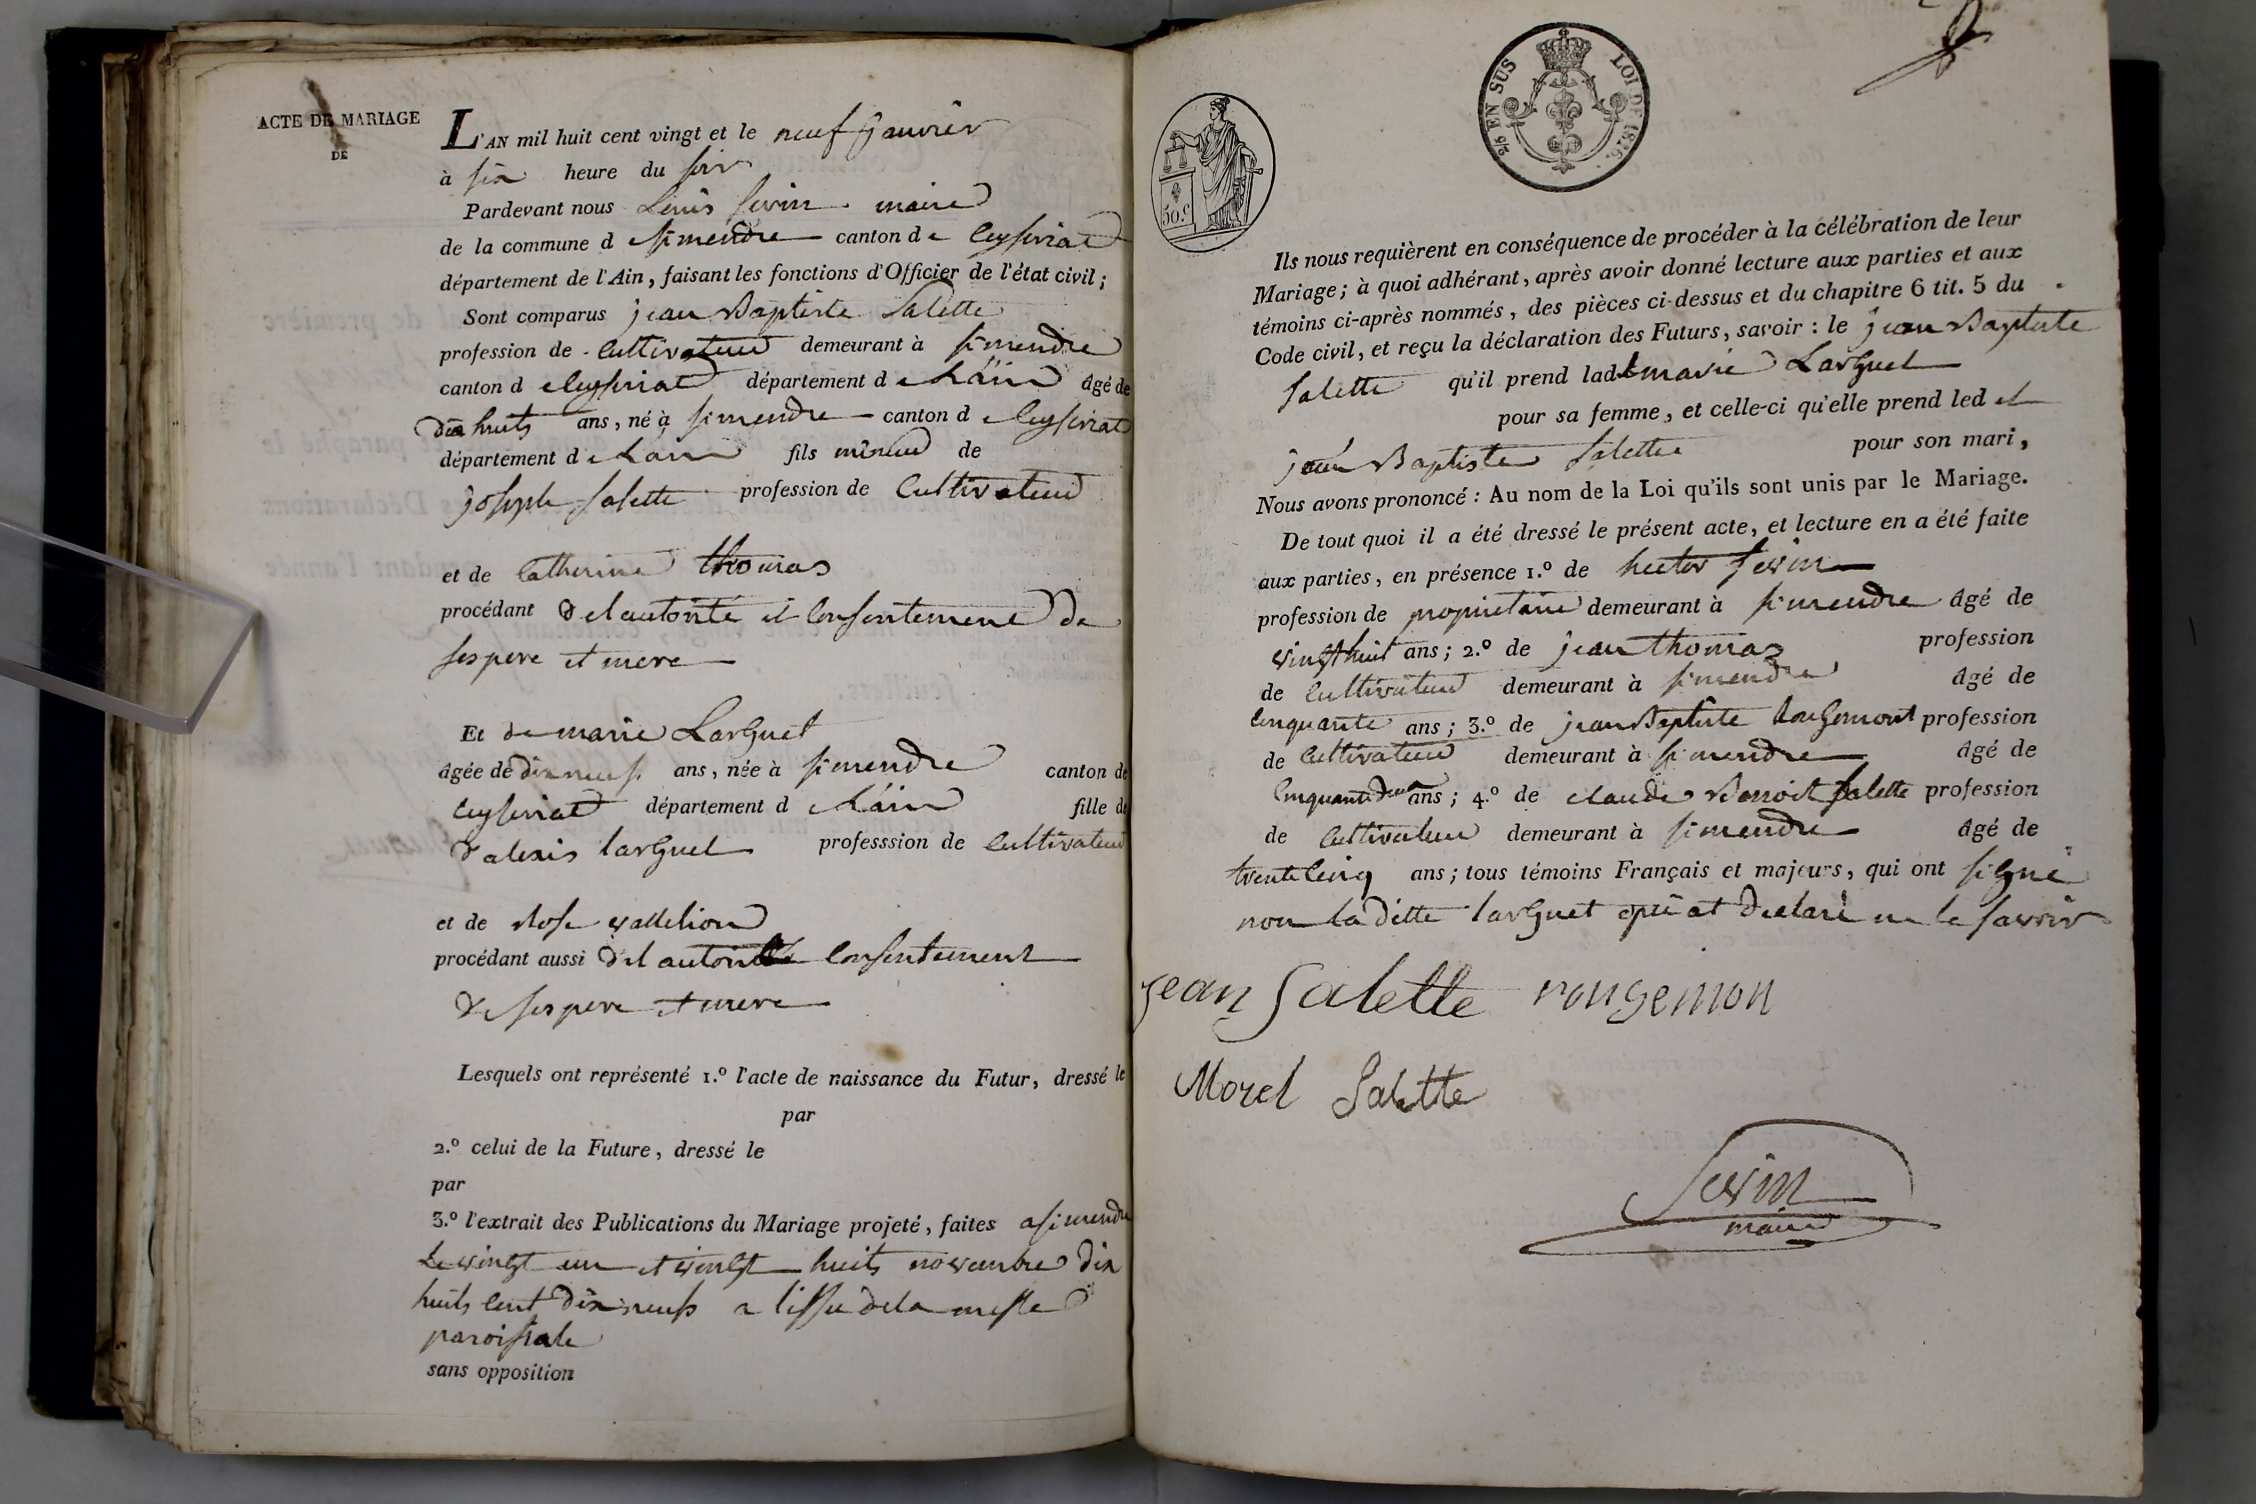 ACTE DE MARIAGE
DE
L'AN mil huit cent vingt et le neuf janvier
à six heure du soir
Pardevant nous Louis sevin maire
de la commune d e simendre canton d e Ceyseriat
département de l'Ain, faisant les fonctions d'Officier de l'état civil;
Sont comparus jean Baptiste Salette
profession de Cultivateur demeurant à simendre
canton d e Ceyseriat département d e L'ain âgé de
dix huits ans, né à simendre canton d e Ceyseriat
département d e L'ain fils mineur de
joseph Salette profession de Cultivateur
et de Catherine thomas
procédant de l autorité et Consentement de
ses pere et mere
Et de marie Larguet
âgée de dix neufs ans, née à simendre canton de
Ceyseriat département d e L'ain fille de
d alexis larguet professsion de Cultivateur
et de Rose
procédant aussi de l autorité Consentement
de ses pere et mere
Lesquels ont représenté 1.º l'acte de naissance du Futur, dressé le
par
2.º celui de la Future, dressé le
par
3.º l'extrait des Publications du Mariage projeté, faites a simendre
Le vingt un et vingt huits novembre dix
huits Cent dix neufs a l'issue de la messe
paroissiale
sans opposition
2/5 EN SUS LOI DE 1816.
50.c
Ils nous requièrent en conséquence de procéder à la célébration de leur
Mariage; à quoi adhérant, après avoir donné lecture aux parties et aux
témoins ci-après nommés, des pièces ci-dessus et du chapitre 6 tit. 5 du
Code civil, et reçu la déclaration des Futurs, savoir : le jean Baptiste
Salette qu'il prend lad te marie Larguet
pour sa femme, et celle-ci qu'elle prend led et
jean Baptiste Salette pour son mari,
Nous avons prononcé : Au nom de la Loi qu'ils sont unis par le Mariage.
De tout quoi il a été dressé le présent acte, et lecture en a été faite
aux parties, en présence 1.º de hector sevin
profession de propriétaire demeurant à simendre âgé de
vingt huit ans; 2.º de jean thomas profession
de Cultivateur demeurant à simendre âgé de
Cinquante ans; 3.º de jean Baptiste Rougemont profession
de Cultivateur demeurant à simendre âgé de
Cinquante deux ans; 4.º de Claude Benoit Salette profession
de Cultivateur demeurant à simendre âgé de
trente Cinq ans; tous témoins Français et majeurs, qui ont signé
non la ditte larguet qui at declaré ne le savoir
jean Salette rougemon
Morel Salette
Sevin
maire